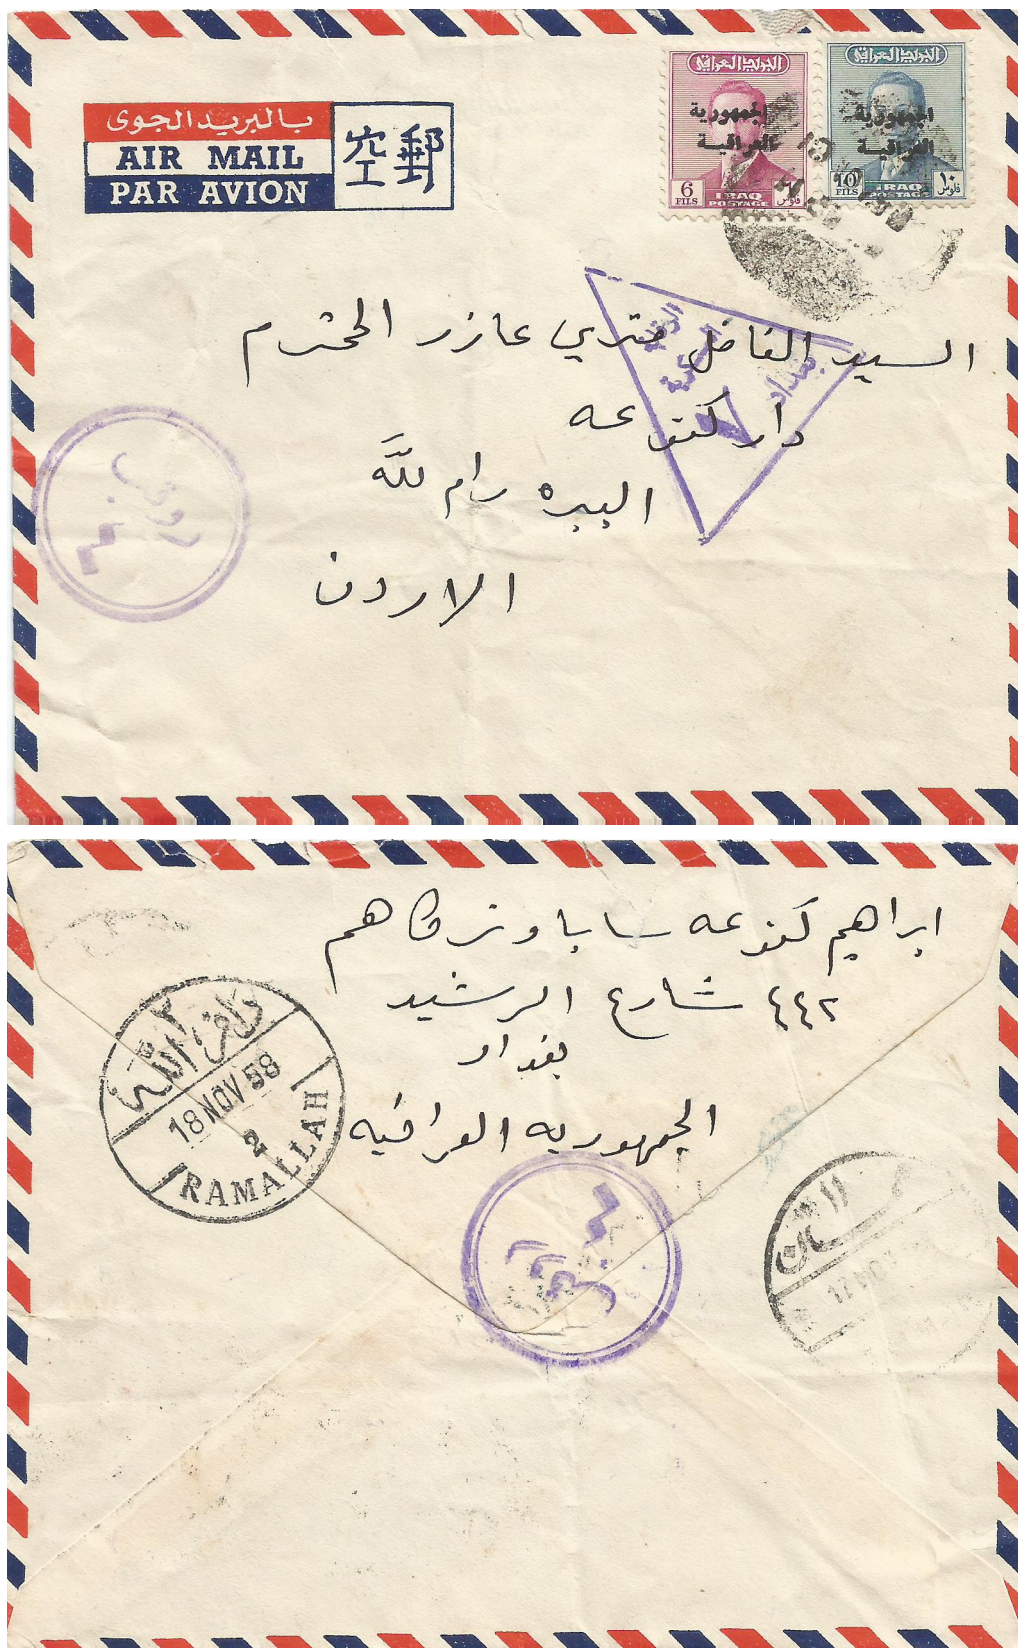 بالبريد الجوى
AIR MAIL
PAR AVION
空郵
البريد العراقي
الجمهورية
العراقية
6
FILS
IRAQ
POSTAGE
فلوس
البريد العراقي
الجمهورية
العراقية
10
FILS
IRAQ
POSTAGE
١٠
فلوس
بغداد
السيد الفاضل متري عازر المحترم
دار كنوعه
البيره رام لله
الاردن
روقب
ابراهيم كنوعه سابا وشركاهم
٤٤٢ شارع الرشيد
بغداد
الجمهوريه العراقيه
رام الله ٢
18 NOV 58
2
RAMALLAH
عمان
17 NOV